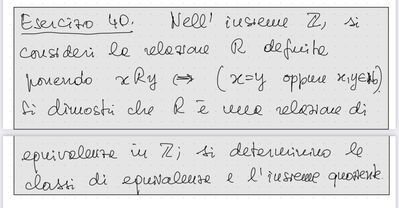 Esercizo 40. Nell' insieme ℤ, si
consideri la relazione R definita
ponendo xRy ⇔ (x=y oppure x,y∈ℕ)
Si dimostri che R è una relazione di
equivalenza in ℤ; si determinino le
classi di equivalenza e l'insieme quoziente.